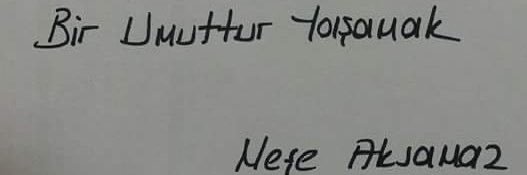 Bir Umuttur Yaşamak
Neşe Aksamaz